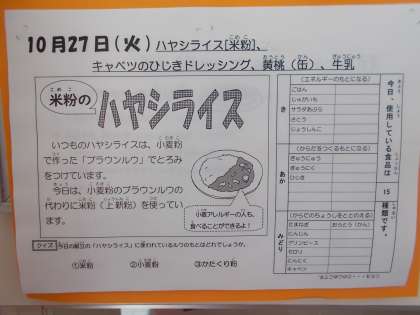 10月27日(火)ハヤシライス[米粉]、
キャベツのひじきドレッシング、黄桃(缶)、牛乳
米粉の
ハヤシライス
いつものハヤシライスは、小麦粉
で作った「ブラウンルウ」でとろみ
をつけています。
今日は、小麦粉のブラウンルウの
代わりに米粉(上新粉)を使ってい
ます。
小麦アレルギーの人も、
食べることができるよ!
クイズ
今日の献立の「ハヤシライス」に使われているルウのもとはどれでしょうか。
①米粉 ②小麦粉 ③かたくり粉
今日、使用している食品は 15 種類です。
き
(エネルギーのもとになる)
ごはん
じゃがいも
サラダあぶら
さとう
じょうしんこ
あか
(からだをつくるもとになる)
ぎゅうにゅう
ぎゅうにく
ひじき
みどり
(からだのちょうしをととのえる)
たまねぎ おうとう(かん)
にんじん
グリンピース
セロリ
にんにく
キャベツ